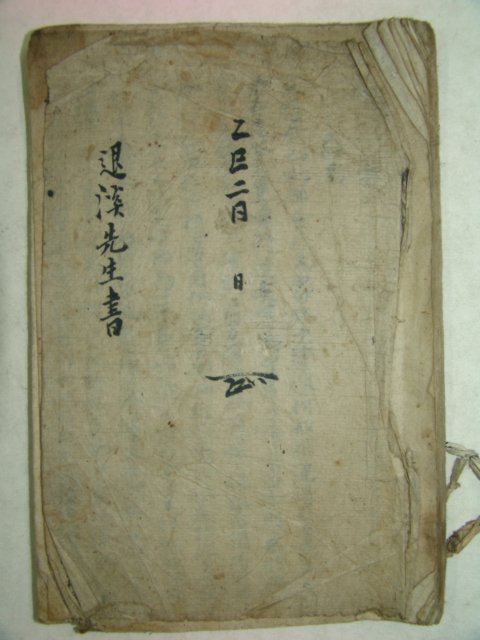 乙巳二月 日
退溪先生書